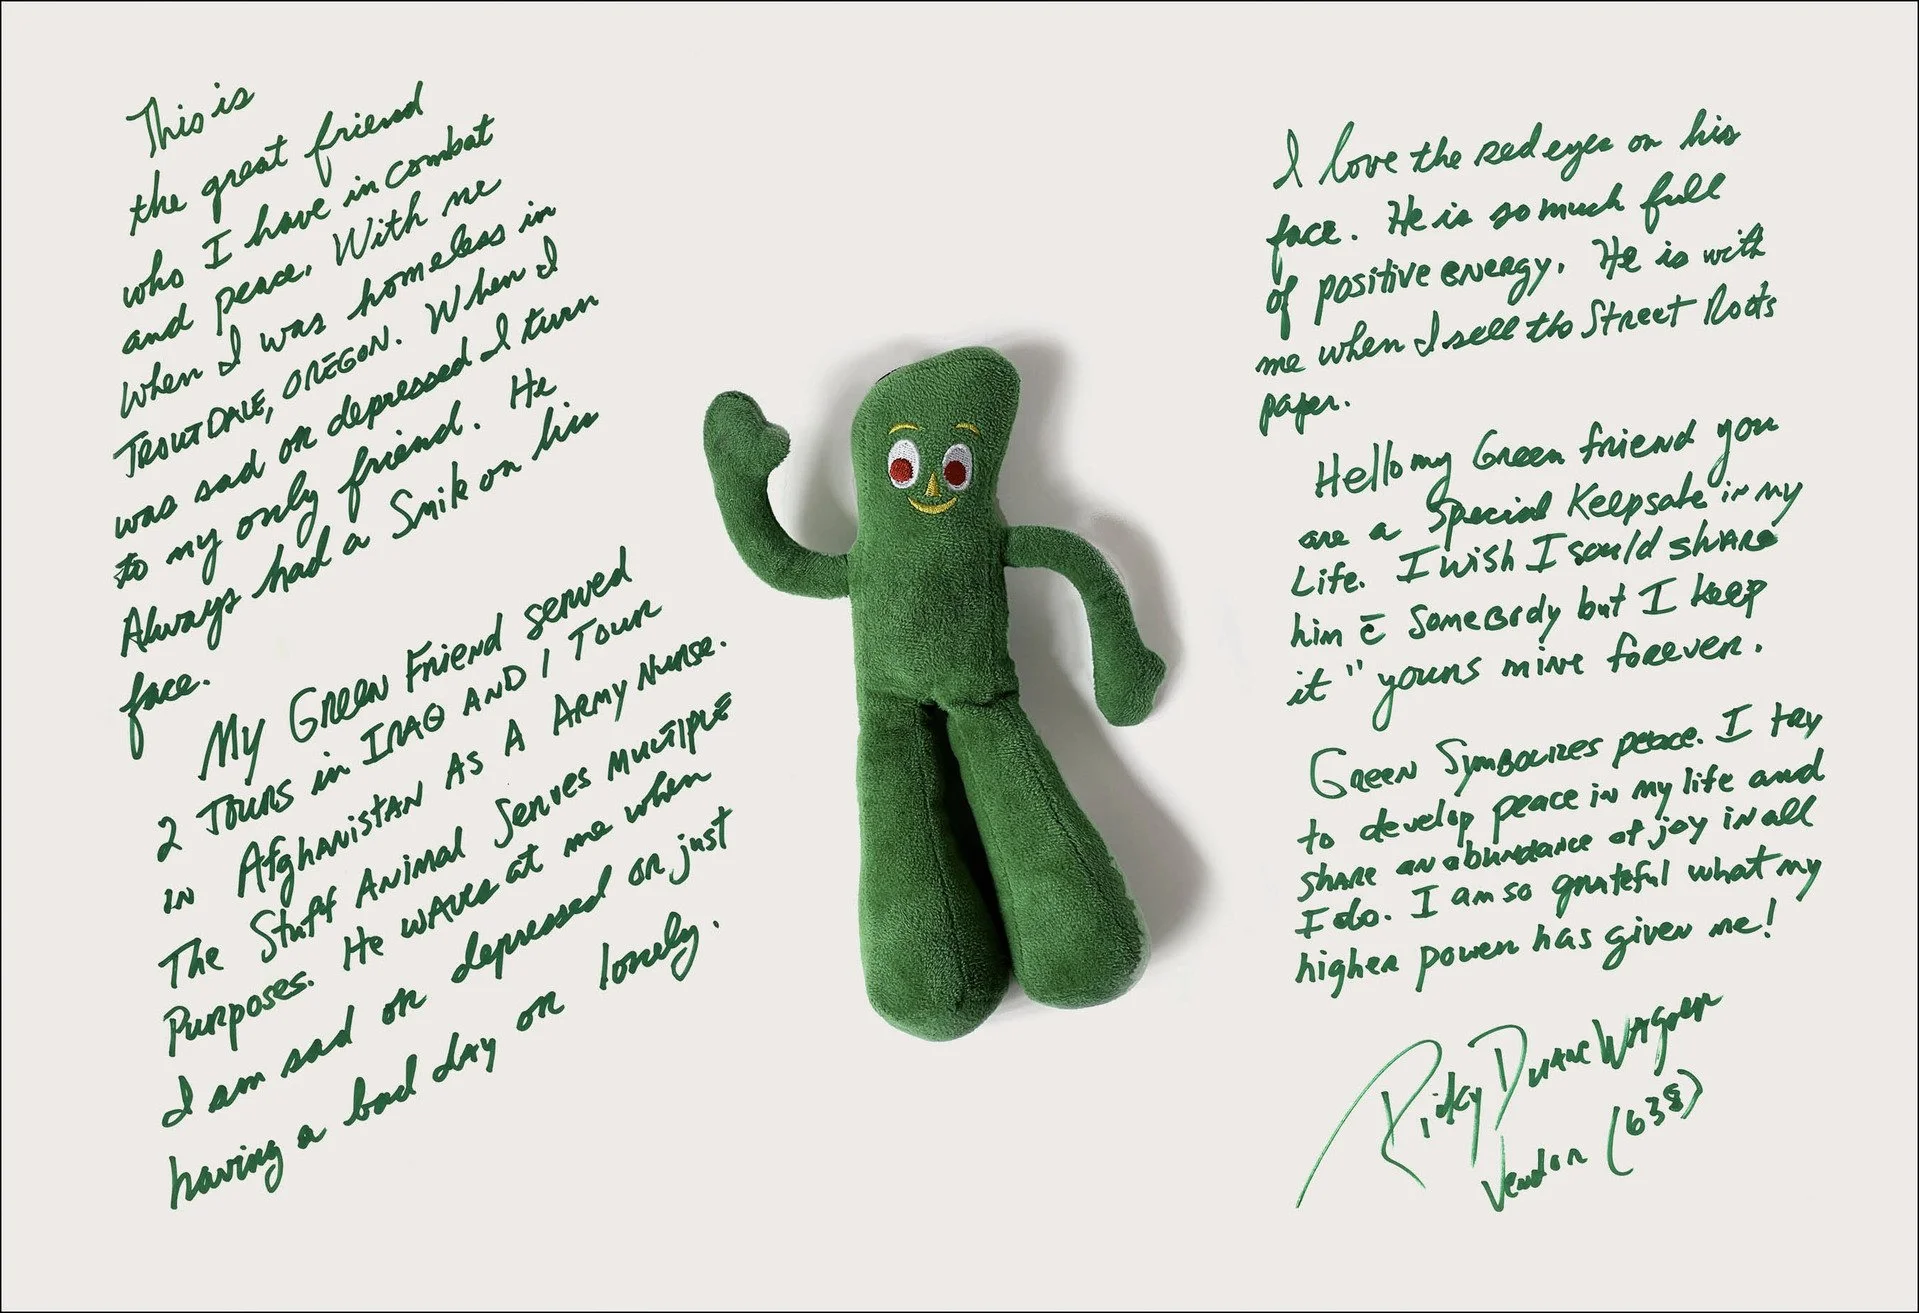 This is
the great friend
who I have in combat
and peace. With me
when I was homeless in
TROUTDALE, OREGON. When I
was sad or depressed I turn
to my only friend. He
Always had a Smile on his
face.
My Green Friend served
2 Tours in IRAQ AND 1 Tour
in Afghanistan As A Army Nurse.
The Stuff Animal Serves Multiple
Purposes. He waves at me when
I am sad or depressed or just
having a bad day or lonely.
I love the red eyes on his
face. He is so much full
of positive energy. He is with
me when I sell the Street Roots
paper.
Hello my Green friend you
are a Special Keepsake in my
Life. I wish I could share
him c̄ Somebody but I keep
it " yours mine forever.
Green Symbolizes peace. I try
to develop peace in my life and
share an abundance of joy in all
I do. I am so grateful what my
higher power has given me!
Ricky Duane Wagner
Vendor (638)